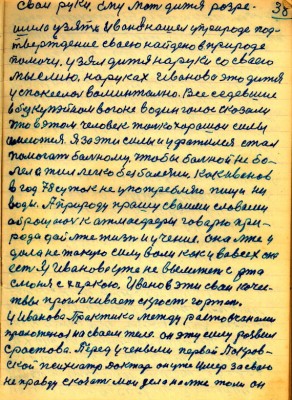 свои руки, ему мот дитя разре- 38
шила узять Иванов нашел у природе под-
тверждение своего найдено в природе
помочи, узял дитя на руки со своею
мыслию, на руках Иванова это дитя
успокоелось воминтално. Все седевшие
в купэйтом вогоне водин голос сказали
што в этом человек только хорошаи силы
имеютея. Я за эти силы и ухватился стал
помогат балному, чтобы балной не бо-
лел а жил легко без балезни. Как Иванов
в год 78 суток не употребляю пищи ни
воды. А природу прашу своими словами
оброщаюс к атмосферы говарю при-
рода дай мне жизть и учение, она мне и
дала не такую силу воли как у вовсех он
ест. У Иванова уте не вымтет с рта
с каркою. Иванов эти свои каче-
твы промачивает скрост гортон.
У Иванова Практика между растоесканами
на своем теле. он эту силу розвил
с растова. Перед ученеми первой Покров-
ской психиатр доктар он уте имер засвою
не правду сказат мои дела може толи он